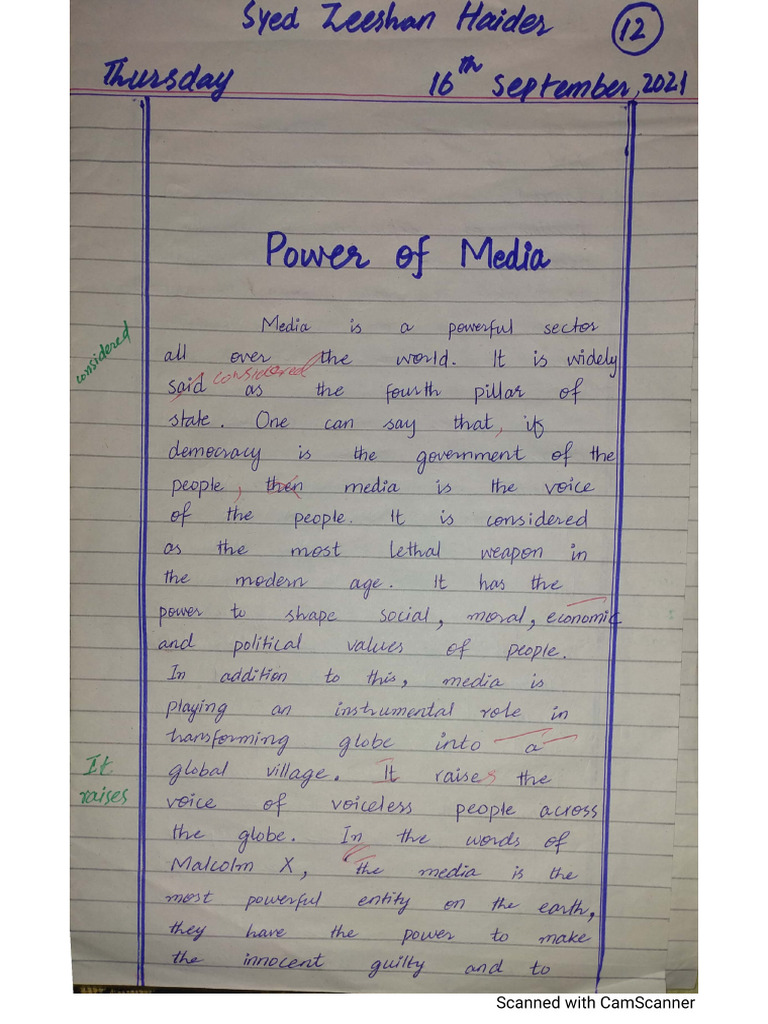 Syed Zeeshan Haider 12
Thursday 16th September, 2021
Power of Media
Media is a powerful sector
all over the world. It is widely
considered
said considered as the fourth pillar of
state. One can say that, if
democracy is the government of the
people, then media is the voice
of the people. It is considered
as the most lethal weapon in
the modern age. It has the
power to shape social, moral, economic
and political values of people.
In addition to this, media is
playing an instrumental role in
transforming globe into a
It
raises
global village. It raises the
voice of voiceless people across
the globe. In the words of
Malcolm X, "the media is the
most powerful entity on the earth,
they have the power to make
the innocent guilty and to
Scanned with CamScanner